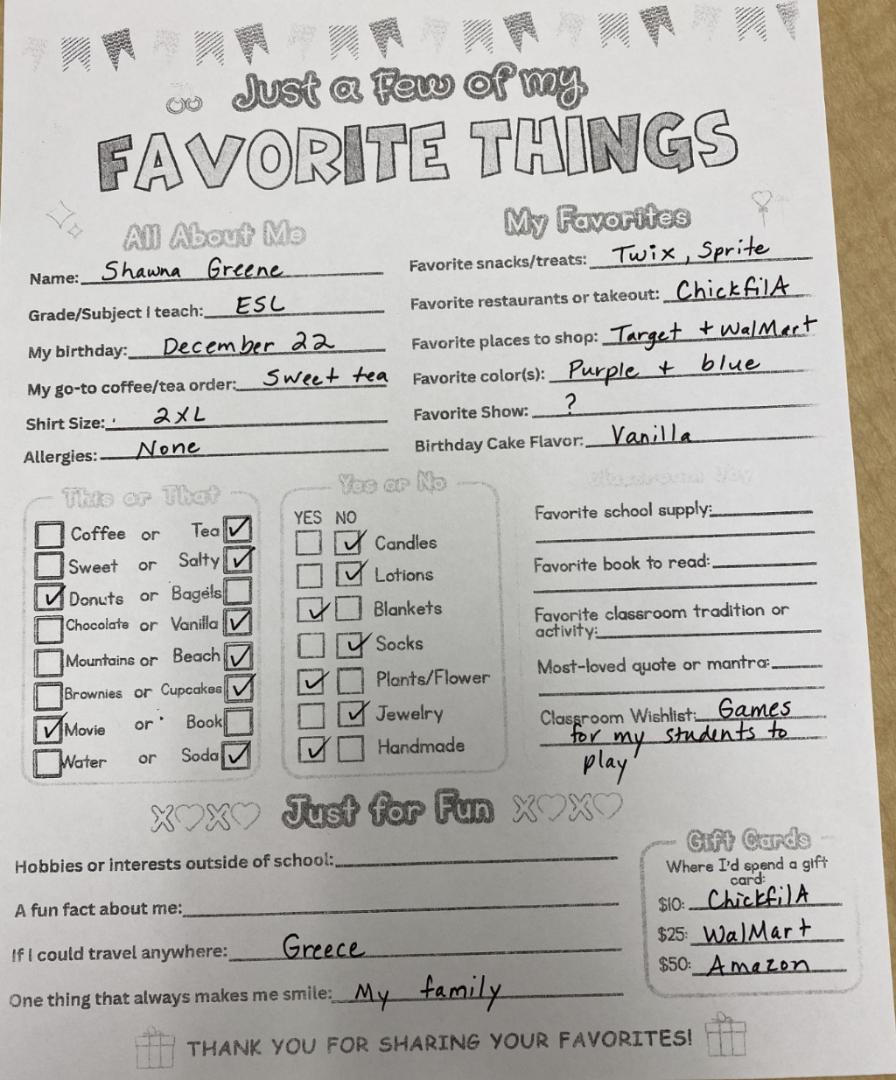 Just a Few of my
FAVORITE THINGS
All About Me
Name: Shawna Greene
Grade/Subject I teach: ESL
My birthday: December 22
My go-to coffee/tea order: Sweet tea
Shirt Size: 2XL
Allergies: None
My Favorites
Favorite snacks/treats: Twix, Sprite
Favorite restaurants or takeout: ChickfilA
Favorite places to shop: Target + WalMart
Favorite color(s): Purple + blue
Favorite Show: ?
Birthday Cake Flavor: Vanilla
This or That
Coffee or Tea ✓
Sweet or Salty ✓
✓ Donuts or Bagels
Chocolate or Vanilla ✓
Mountains or Beach ✓
Brownies or Cupcakes ✓
✓ Movie or Book
Water or Soda ✓
Yes or No
YES NO
✓ Candles
✓ Lotions
✓ Blankets
✓ Socks
✓ Plants/Flower
✓ Jewelry
✓ Handmade
Favorite school supply:
Favorite book to read:
Favorite classroom tradition or
activity:
Most-loved quote or mantra:
Classroom Wishlist: Games
for my students to
play
XOXO Just for Fun XOXO
Hobbies or interests outside of school:
A fun fact about me:
If I could travel anywhere: Greece
One thing that always makes me smile: My family
Gift Cards
Where I'd spend a gift
card:
$10: ChickfilA
$25: WalMart
$50: Amazon
THANK YOU FOR SHARING YOUR FAVORITES!